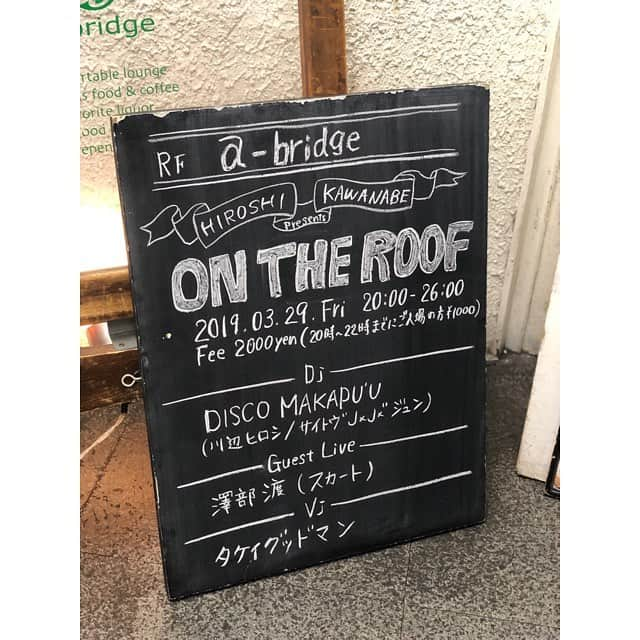 bridge
rtable lounge
s food & coffee
orite liquor
ood
epen
RF a-bridge
HIROSHI KAWANABE
presents
ON THE ROOF
2019.03.29.Fri 20:00-26:00
Fee 2000yen (20時〜22時までにご入場の方¥1000)
Dj
DISCO MAKAPU'U
(川辺ヒロシ/サイトウ"JxJx"ジュン)
Guest Live
澤部 渡 (スカート)
Vj
タケイグッドマン